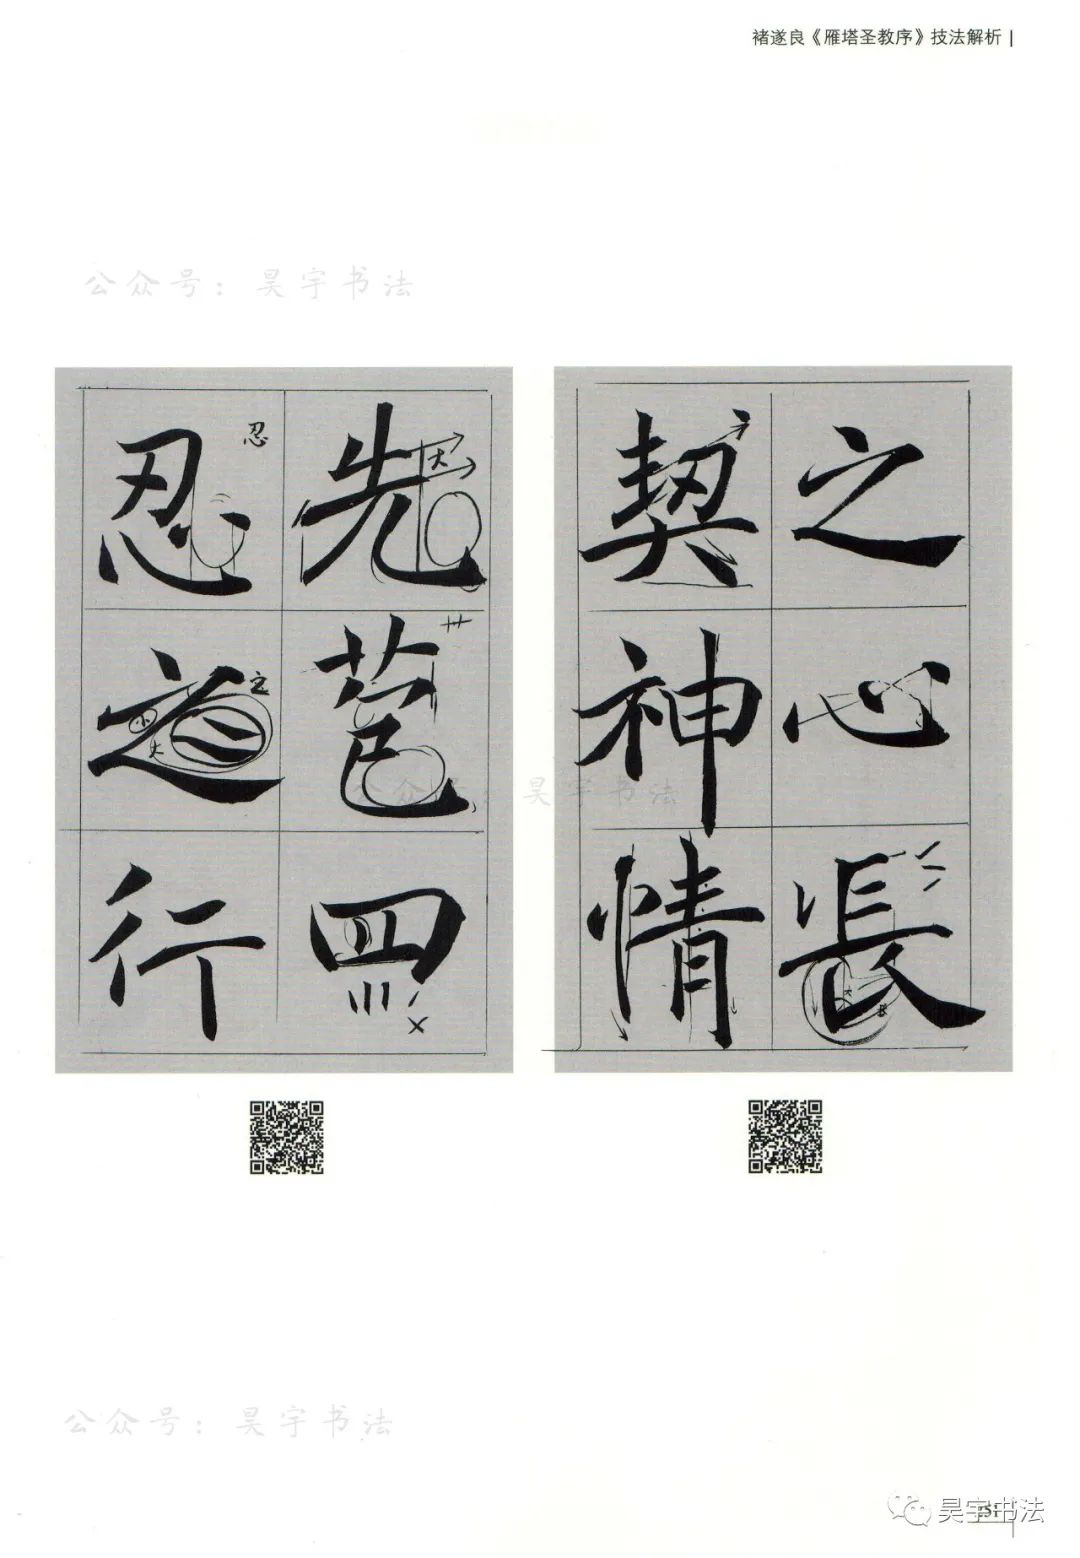 褚遂良《雁塔圣教序》技法解析
公众号：昊宇书法
之心長
契神情
先苞四
忍道行
忍
主
小
大
公众号：昊宇书法
公众号：昊宇书法
251
昊宇书法